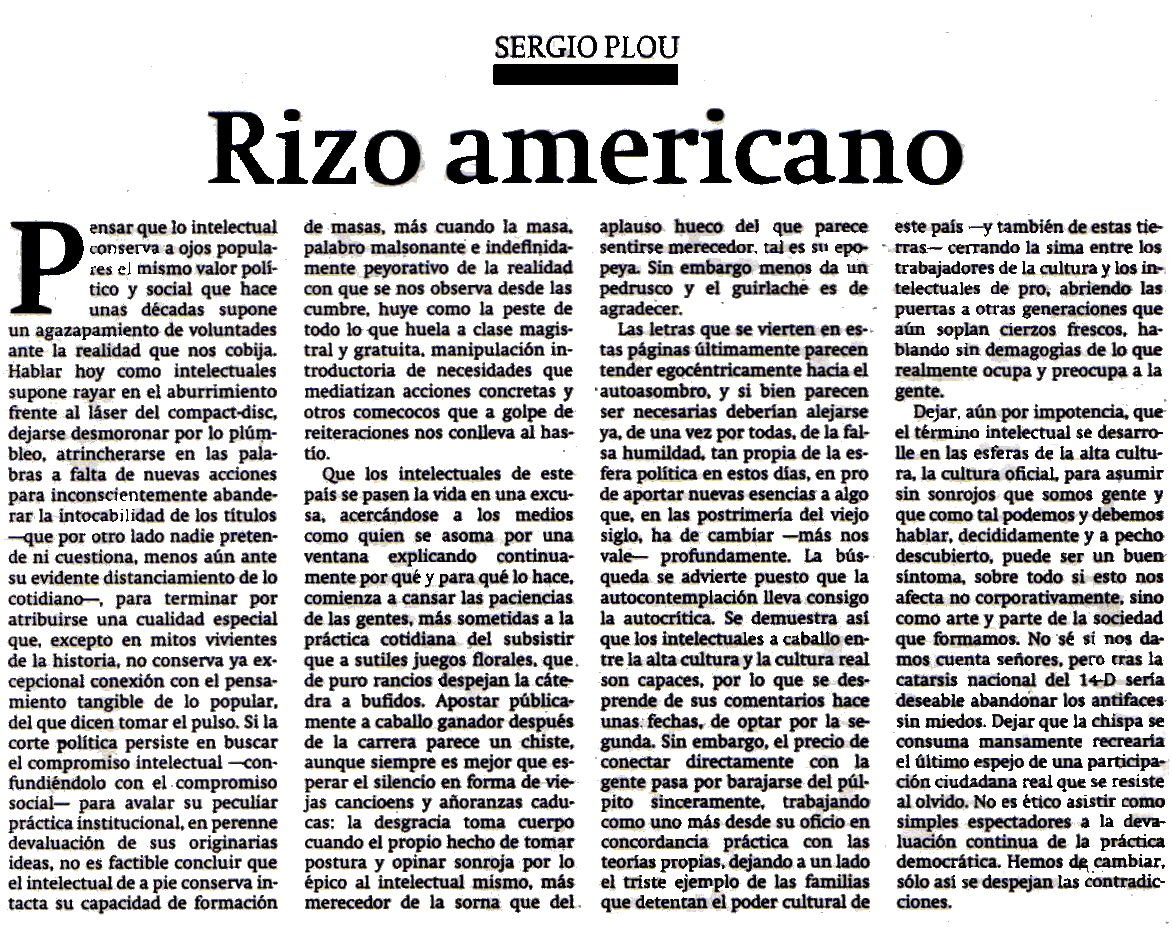 SERGIO PLOU
Rizo americano
Pensar que lo intelectual
conserva a ojos popula-
res el mismo valor polí-
tico y social que hace
unas décadas supone
un agazapamiento de voluntades
ante la realidad que nos cobija.
Hablar hoy como intelectuales
supone rayar en el aburrimiento
frente al láser del compact-disc,
dejarse desmoronar por lo plúm-
bleo, atrincherarse en las pala-
bras a falta de nuevas acciones
para inconscientemente abande-
rar la intocabilidad de los títulos
—que por otro lado nadie preten-
de ni cuestiona, menos aún ante
su evidente distanciamiento de lo
cotidiano—, para terminar por
atribuirse una cualidad especial
que, excepto en mitos vivientes
de la historia, no conserva ya ex-
cepcional conexión con el pensa-
miento tangible de lo popular,
del que dicen tomar el pulso. Si la
corte política persiste en buscar
el compromiso intelectual —con-
fundiéndolo con el compromiso
social— para avalar su peculiar
práctica institucional, en perenne
devaluación de sus originarias
ideas, no es factible concluir que
el intelectual de a pie conserva in-
tacta su capacidad de formación
de masas, más cuando la masa,
palabro malsonante e indefinida-
mente peyorativo de la realidad
con que se nos observa desde las
cumbre, huye como la peste de
todo lo que huela a clase magis-
tral y gratuita, manipulación in-
troductoria de necesidades que
mediatizan acciones concretas y
otros comecocos que a golpe de
reiteraciones nos conlleva al has-
tío.
Que los intelectuales de este
país se pasen la vida en una excu-
sa, acercándose a los medios
como quien se asoma por una
ventana explicando continua-
mente por qué y para qué lo hace,
comienza a cansar las paciencias
de las gentes, más sometidas a la
práctica cotidiana del subsistir
que a sutiles juegos florales, que
de puro rancios despejan la cáte-
dra a bufidos. Apostar pública-
mente a caballo ganador después
de la carrera parece un chiste,
aunque siempre es mejor que es-
perar el silencio en forma de vie-
jas cancioens y añoranzas cadu-
cas: la desgracia toma cuerpo
cuando el propio hecho de tomar
postura y opinar sonroja por lo
épico al intelectual mismo, más
merecedor de la sorna que del
aplauso hueco del que parece
sentirse merecedor, tal es su epo-
peya. Sin embargo menos da un
pedrusco y el guirlache es de
agradecer.
Las letras que se vierten en es-
tas páginas últimamente parecen
tender egocéntricamente hacia el
autoasombro, y si bien parecen
ser necesarias deberían alejarse
ya, de una vez por todas, de la fal-
sa humildad, tan propia de la es-
fera política en estos días, en pro
de aportar nuevas esencias a algo
que, en las postrimería del viejo
siglo, ha de cambiar —más nos
vale— profundamente. La bús-
queda se advierte puesto que la
autocontemplación lleva consigo
la autocrítica. Se demuestra así
que los intelectuales a caballo en-
tre la alta cultura y la cultura real
son capaces, por lo que se des-
prende de sus comentarios hace
unas fechas, de optar por la se-
gunda. Sin embargo, el precio de
conectar directamente con la
gente pasa por barajarse del púl-
pito sinceramente, trabajando
como uno más desde su oficio en
concordancia práctica con las
teorías propias, dejando a un lado
el triste ejemplo de las familias
que detentan el poder cultural de
este país —y también de estas tie-
rras— cerrando la sima entre los
trabajadores de la cultura y los in-
telectuales de pro, abriendo las
puertas a otras generaciones que
aún soplan cierzos frescos, ha-
blando sin demagogias de lo que
realmente ocupa y preocupa a la
gente.
Dejar, aún por impotencia, que
el término intelectual se desarro-
lle en las esferas de la alta cultu-
ra, la cultura oficial, para asumir
sin sonrojos que somos gente y
que como tal podemos y debemos
hablar, decididamente y a pecho
descubierto, puede ser un buen
síntoma, sobre todo si esto nos
afecta no corporativamente, sino
como arte y parte de la sociedad
que formamos. No sé si nos da-
mos cuenta señores, pero tras la
catarsis nacional del 14-D sería
deseable abandonar los antifaces
sin miedos. Dejar que la chispa se
consuma mansamente recrearía
el último espejo de una participa-
ción ciudadana real que se resiste
al olvido. No es ético asistir como
simples espectadores a la deva-
luación continua de la práctica
democrática. Hemos de cambiar,
sólo así se despejan las contradic-
ciones.